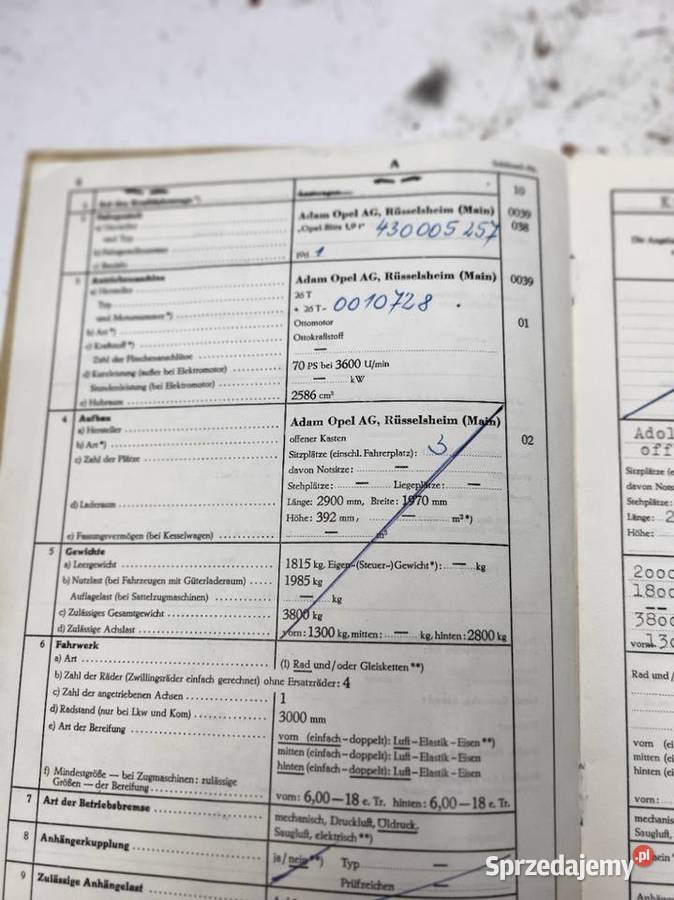 A
10
Adam Opel AG, Rüsselsheim (Main) 0039
„Opel Blitz 1,9 t" 430005257 038
1
3 Antriebsmaschine
a) Hersteller Adam Opel AG, Rüsselsheim (Main) 0039
Typ 26 T
und Motornummer*) * 26 T- 0010728
b) Art*) Ottomotor 01
c) Kraftstoff*) Ottokraftstoff
Zahl der Flaschenanschlüsse —
d) Kurzleistung (außer bei Elektromotor) 70 PS bei 3600 U/min
Stundenleistung (bei Elektromotor) — kW
e) Hubraum 2586 cm³
4 Aufbau
a) Hersteller Adam Opel AG, Rüsselsheim (Main)
b) Art*) offener Kasten 02
c) Zahl der Plätze Sitzplätze (einschl. Fahrerplatz): 3
davon Notsitze: —
Stehplätze: — Liegeplätze: —
d) Laderaum Länge: 2900 mm, Breite: 1970 mm
Höhe: 392 mm, — m³*)
e) Fassungsvermögen (bei Kesselwagen) — m³
5 Gewichte
a) Leergewicht 1815 kg, Eigen-(Steuer-)Gewicht*): — kg
b) Nutzlast (bei Fahrzeugen mit Güterladeraum) 1985 kg
Auflagelast (bei Sattelzugmaschinen) — kg
c) Zulässiges Gesamtgewicht 3800 kg
d) Zulässige Achslast vorn: 1300 kg, mitten: — kg, hinten: 2800 kg
6 Fahrwerk
a) Art (1) Rad und/oder Gleisketten **)
b) Zahl der Räder (Zwillingsräder einfach gerechnet) ohne Ersatzräder: 4
c) Zahl der angetriebenen Achsen 1
d) Radstand (nur bei Lkw und Kom) 3000 mm
e) Art der Bereifung vorn (einfach – doppelt): Luft – Elastik – Eisen **)
mitten (einfach – doppelt): Luft – Elastik – Eisen
hinten (einfach – doppelt): Luft – Elastik – Eisen
f) Mindestgröße — bei Zugmaschinen: zulässige
Größen — der Bereifung vorn: 6,00—18 e. Tr. hinten: 6,00—18 e. Tr.
7 Art der Betriebsbremse mechanisch, Druckluft, Öldruck,
Saugluft, elektrisch **)
8 Anhängerkupplung ja/nein **) Typ —
Prüfzeichen —
9 Zulässige Anhängelast
K
Adol
off
Sitzplätze (e
davon Nots
Stehplätze:
Länge: 2
Höhe:
2000
1800
--
3800
vorn: 130
Rad und/
vorn (ei
mitten (ei
hinten (ei
vorn:
mechanis
Saugluft,
Sprzedajemy.pl